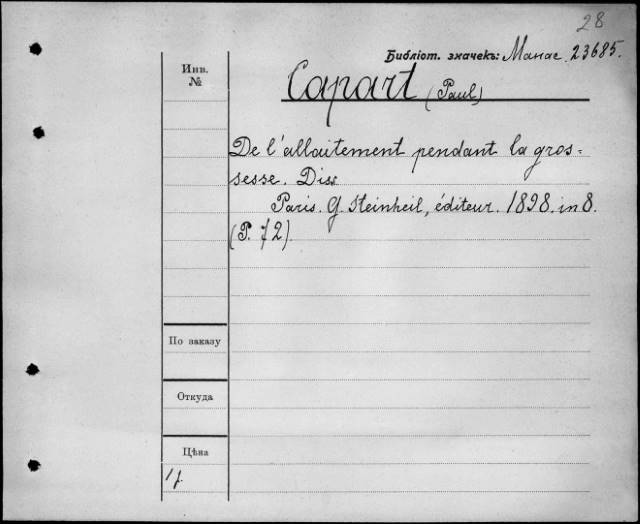 28
Библіот. значекъ: Манас 23685.
Инв.
№
Capart (Paul)
De l'allaitement pendant la gros=
sesse. Diss
Paris. G. Steinheil, éditeur. 1898. in 8.
(P. 72).
По заказу
Откуда
Цѣна